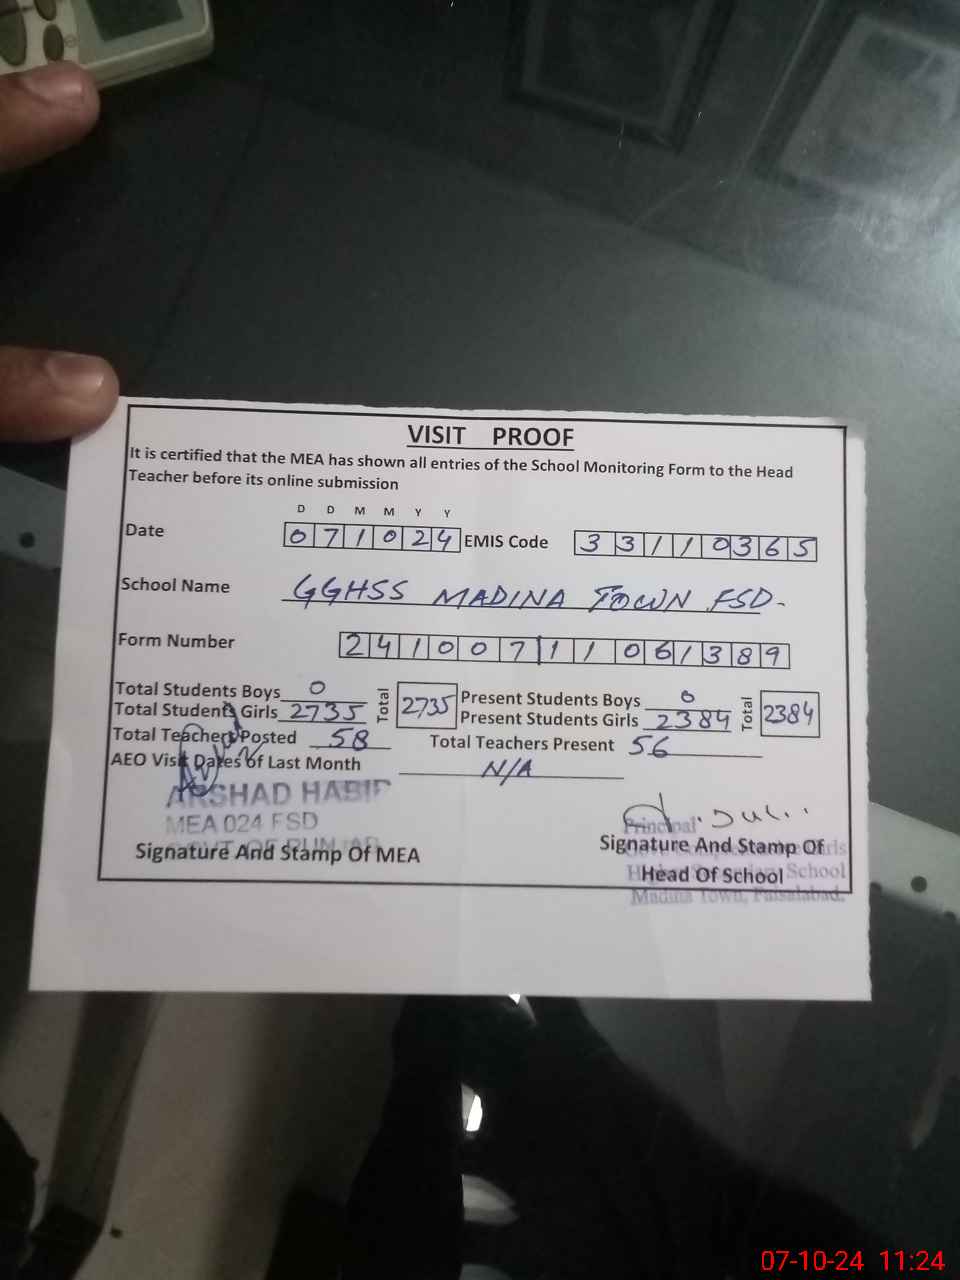 VISIT PROOF
It is certified that the MEA has shown all entries of the School Monitoring Form to the Head
Teacher before its online submission
D D M M Y Y
Date 0 7 1 0 2 4 EMIS Code 3 3 1 1 0 3 6 5
School Name GGHSS MADINA TOWN FSD.
Form Number 2 4 1 0 0 7 1 1 0 6 1 3 8 9
Total Students Boys 0 Total 2735 Present Students Boys 0 Total 2384
Total Students Girls 2735 Present Students Girls 2384
Total Teachers Posted 58 Total Teachers Present 56
AEO Visit Dates of Last Month N/A
ARSHAD HABIB
MEA 024 FSD
GOVT OF PUNJAB
Signature And Stamp Of MEA
Principal
Signature And Stamp Of
Girls
Head Of School
School
Madina Town, Faisalabad.
07-10-24 11:24